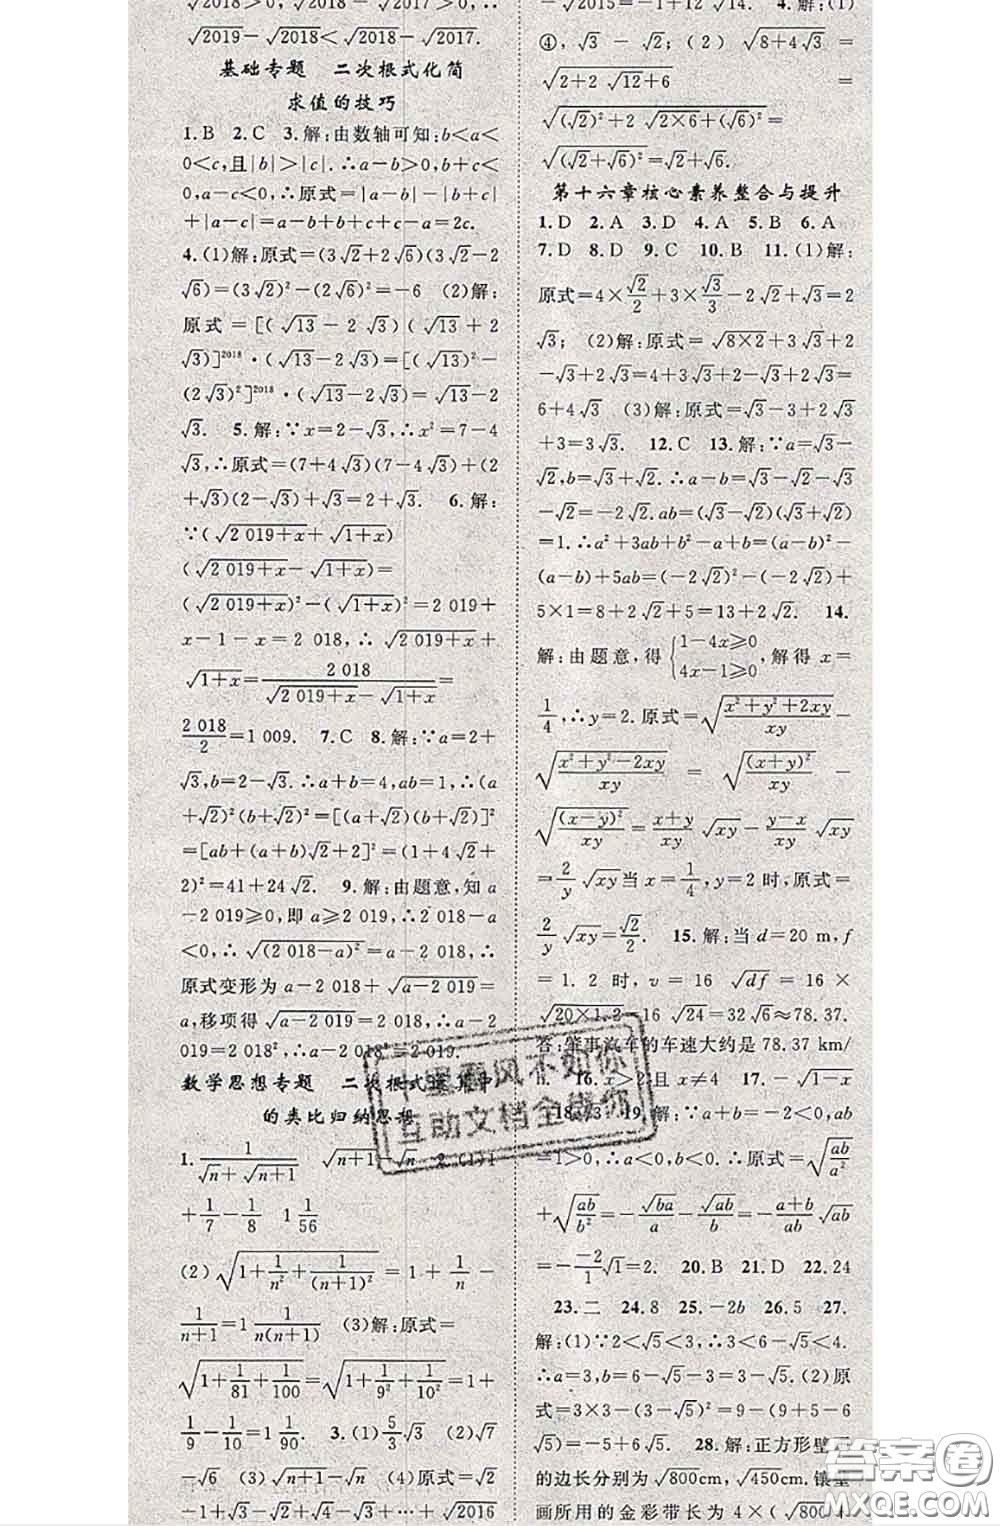 √2018>0,√2018-√2017>0,∴
√2019-√2018<√2018-√2017.
基础专题 二次根式化简
求值的技巧
1.B 2.C 3.解:由数轴可知:b<a<
0<c,且|b|>|c|.∴a-b>0,b+c<
0,a-c<0,∴原式=|a-b|-|b+c|
+|a-c|=a-b+b+c+c-a=2c.
4.(1)解:原式=(3√2+2√6)(3√2-2
√6)=(3√2)²-(2√6)²=-6 (2)解:
原式=[(√13-2√3)(√13+2
√3)]²⁰¹⁸·(√13-2√3)=[(√13)²-
(2√3)²]²⁰¹⁸·(√13-2√3)=√13-2
√3. 5.解:∵x=2-√3,∴x²=7-4
√3,∴原式=(7+4√3)(7-4√3)+(2
+√3)(2-√3)+√3=2+√3. 6.解:
∵(√(2 019+x)+√(1+x))
(√(2 019+x)-√(1+x))=
(√(2 019+x))²-(√(1+x))²=2 019+
x-1-x=2 018,∴√(2 019+x)+
√(1+x)=2 018/(√(2 019+x)-√(1+x))=
2 018/2=1 009. 7.C 8.解:∵a=2+
√3,b=2-√3.∴a+b=4,ab=1,∴(a
+√2)²(b+√2)²=[(a+√2)(b+√2)]²
=[ab+(a+b)√2+2]²=(1+4√2+
2)²=41+24√2. 9.解:由题意,知a
-2 019≥0,即a≥2 019,∴2 018-a
<0,∴√((2 018-a)²)=a-2 018,∴
原式变形为a-2 018+√(a-2 019)=
a,移项得√(a-2 019)=2 018,∴a-2
019=2 018²,∴a-2 018²=2 019.
数学思想专题 二次根式运算中
的类比归纳思想
1. 1/(√n+√(n+1)) √(n+1)-√n 2.(1)1
+1/7-1/8 1 1/56
(2)√(1+1/n²+1/(n+1)²)=1+1/n-
1/(n+1)=1 1/(n(n+1)) (3)解:原式=
√(1+1/81+1/100)=√(1+1/9²+1/10²)=1+
1/9-1/10=1 1/90. 3.(1)5/3√3 (2)√7
-√6 (3)√(n+1)-√n (4)原式=√2
-1+√3-√2+√4-√3+…+√2016
-√2015=-1+12√14. 4.解:(1)
④,√3-√2;(2)√(8+4√3)=
√(2+2√12+6)=
√((√2)²+2√(2×6)+(√6)²)=
√((√2+√6)²)=√2+√6.
第十六章核心素养整合与提升
1.D 2.A 3.D 4.A 5.B 6.A
7.D 8.D 9.C 10.B 11.(1)解:
原式=4×√2/2+3×√3/3-2√2+√3=2
√3; (2)解:原式=√(8×2)+3√3+2
-√3+2√3=4+3√3+2-√3+2√3=
6+4√3 (3)解:原式=√3-3+2√3
+3=3√3. 12.C 13.解:∵a=√3-
√2,b=√3+√2.∴a-b=√3-√2-√3
-√2=-2√2.ab=(√3-√2)(√3+√2)
=1.∴a²+3ab+b²-a+b=(a-b)²-
(a-b)+5ab=(-2√2)²-(-2√2)+
5×1=8+2√2+5=13+2√2. 14.
解:由题意,得{1-4x≥0 4x-1≥0,解得x=
1/4,∴y=2.原式=√((x²+y²+2xy)/xy)-
√((x²+y²-2xy)/xy)=√((x+y)²/xy)-
√((x-y)²/xy)=(x+y)/xy √xy-(y-x)/xy √xy
=2/y √xy当x=1/4,y=2时,原式=
2/y √xy=√2/2. 15.解:当d=20 m,f
=1.2时,v=16√df=16×
√(20×1.2)=16√24=32√6≈78.37.
答:肇事汽车的车速大约是78.37 km/
h. 16.x>2且x≠4 17.-√(1-x)
18.3 19.解:∵a+b=-2,ab
=1>0,∴a<0,b<0.∴原式=√(ab/a²)
+√(ab/b²)=-√ba/a-√ab/b=-(a+b)/ab √ab
=-(-2)/1 √1=2. 20.B 21.D 22.24
23.二 24.8 25.-2b 26.5 27.
解:(1)∵2<√5<3,∴3<6-√5<4.
∴a=3,b=6-√5-3=3-√5.(2)原
式=3×3-(3-√5)²=9-(9+5-6
√5)=-5+6√5. 28.解:正方形壁画
的边长分别为√800cm,√450cm.镶壁
画所用的金彩带长为4×(√800+
十里春风不如你
互助文档全做你
答案圈
MXQE.COM